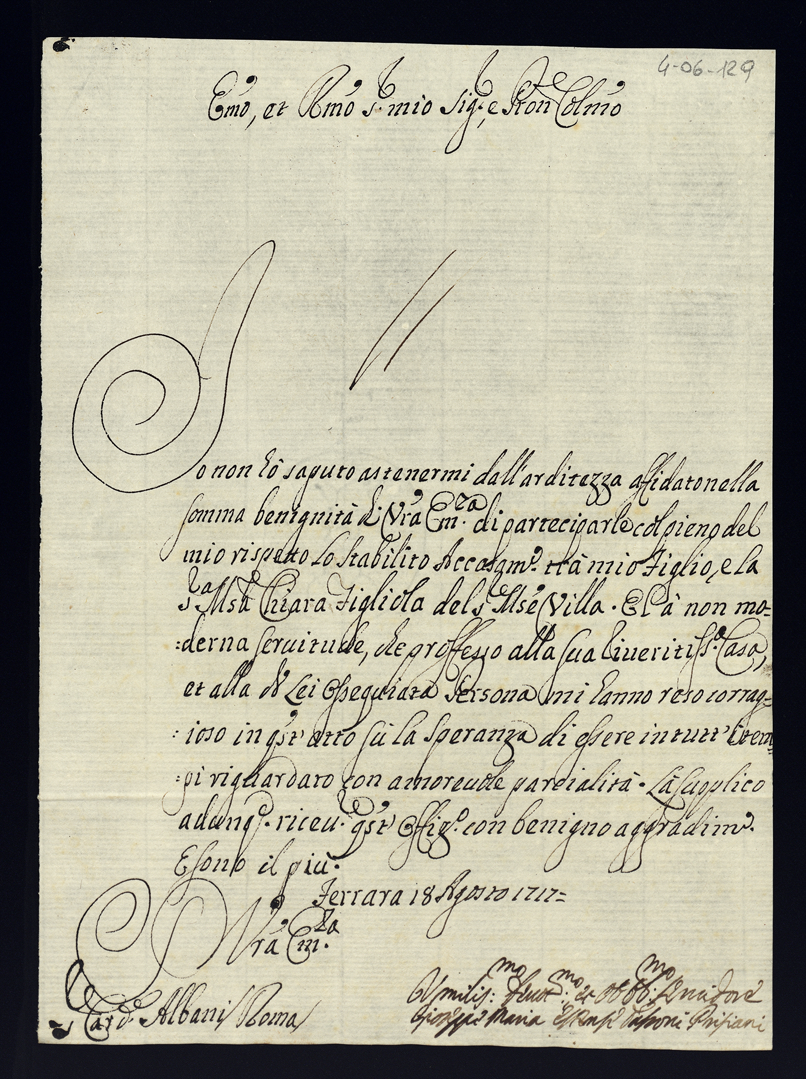 4-06-129
Emo, et Rmo Sr mio Sigr, e Pron Colmo
Io non hò saputo astenermi dall'arditezza affidato nella
somma benignità di Vrã Em.za di participarle col pieno del
mio rispetto lo stabilito Accasam.to trà mio Figlio, e la
S.ra Msã Chiara Figliola del S.r Msẽ Villa. El à non mo=
=derna servitude, che proffesso alla sua riveritiss.a Casa,
et alla di Lei ossequiata Persona mi hanno reso corrag=
=ioso in qst' atto sù la speranza di essere in tutt' i tem=
=pi riguardato con amorevole parcialità. Là supplico
adunq. ricev.re qst' offiz.o con benigno aggradim.to
E sono il più.
Ferrara 18 Agosto 1717=
Vrã Em.za
S.r Card.le Albani Roma
Umilis:mo Devot:mo et Obb:mo Servidore
Gioseppe Maria Estense Tassoni Prisiani